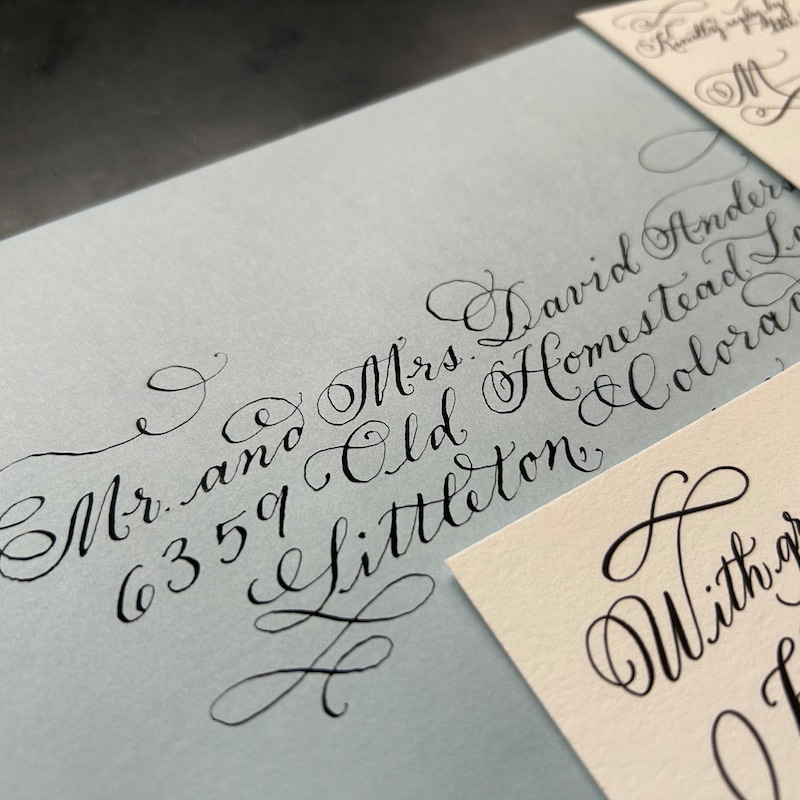 Kindly reply by
the
M
Mr. and Mrs. David Anders
6359 Old Homestead
Littleton, Colora
With